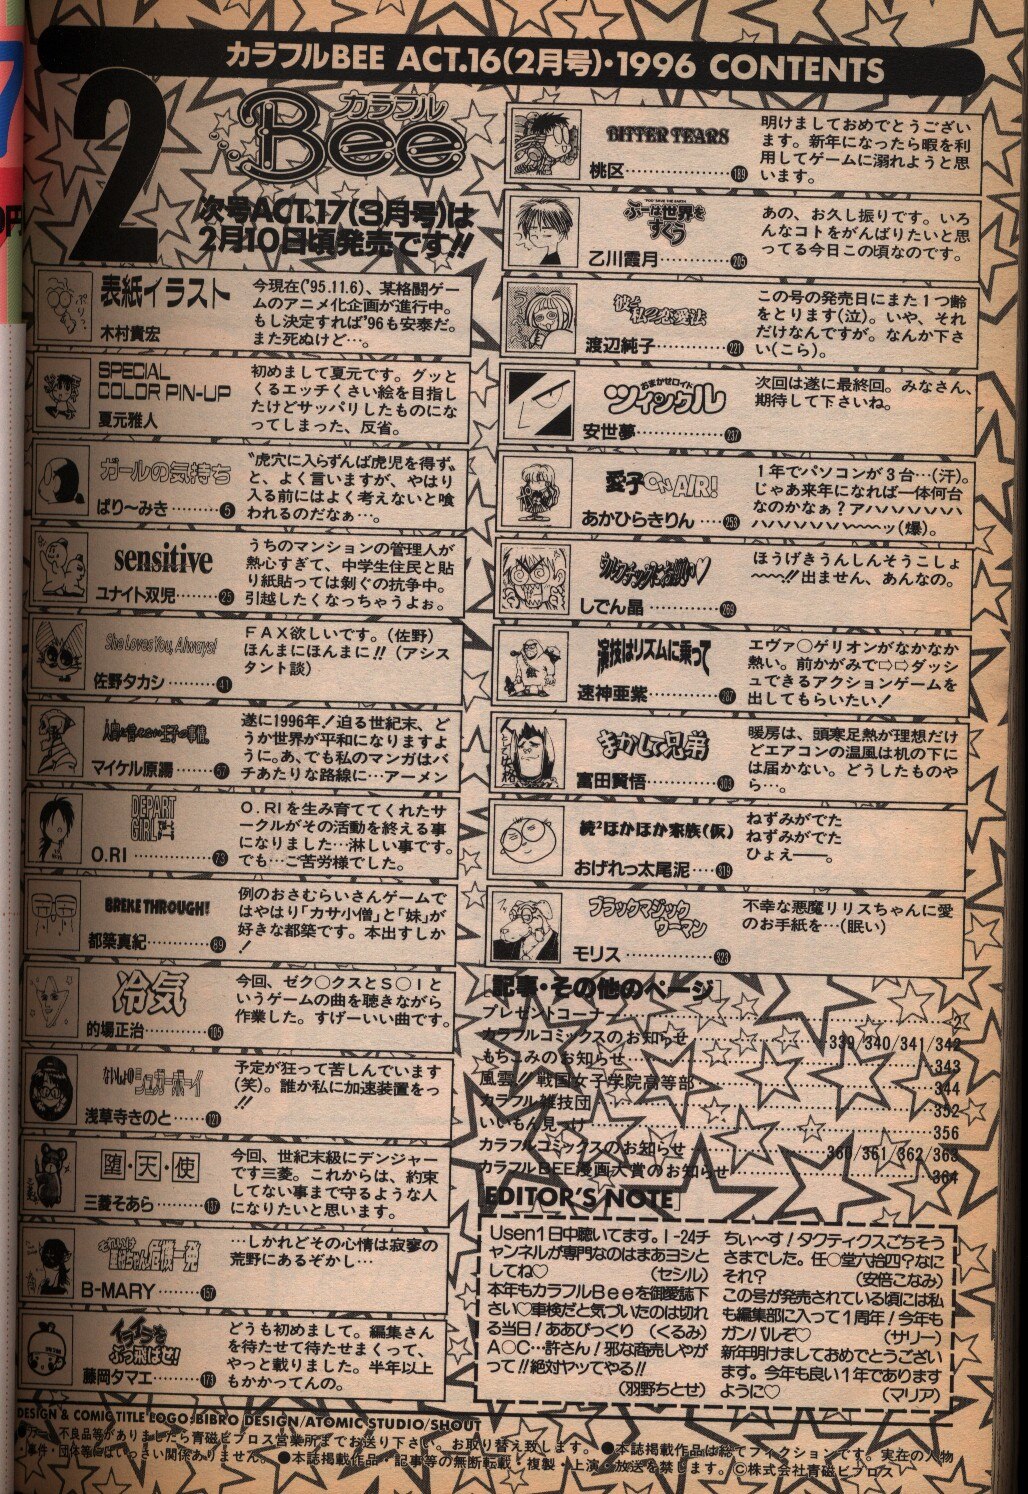 カラフルBEE ACT.16(2月号)・1996 CONTENTS
2
カラフル
Bee
次号ACT.17(3月号)は
2月10日頃発売です!!
表紙イラスト
木村貴宏
今現在('95.11.6)、某格闘ゲー
ムのアニメ化企画が進行中。
もし決定すれば'96も安泰だ。
また死ぬけど…。
SPECIAL
COLOR PIN-UP
夏元雅人
初めまして夏元です。グッと
くるエッチくさい絵を目指し
たけどサッパリしたものにな
ってしまった、反省。
ガールの気持ち
ぱり〜みき………5
〝虎穴に入らずんば虎児を得ず〟
と、よく言いますが、やはり
入る前にはよく考えないと喰
われるのだなぁ…。
sensitive
ユナイト双児……25
うちのマンションの管理人が
熱心すぎて、中学生住民と貼
り紙貼っては剝ぐの抗争中。
引越したくなっちゃうよぉ。
She Loves You, Always!
佐野タカシ………41
FAX欲しいです。(佐野)
ほんまにほんまに!!(アシス
タント談)
マイケル原湯……57
遂に1996年!迫る世紀末、ど
うか世界が平和になりますよ
うに。あ、でも私のマンガはバ
チあたりな路線に…アーメン
DEPART
GIRL
O.RI……………73
O.RIを生み育ててくれたサ
ークルがその活動を終える事
になりました…淋しい事です。
でも…ご苦労様でした。
BREKE THROUGH!
都築真紀…………89
例のおさむらいさんゲームで
はやはり「カサ小僧」と「妹」が
好きな都築です。本出すしか
!
冷気
的場正治…………105
今回、ゼク○クスとS○Iと
いうゲームの曲を聴きながら
作業した。すげーいい曲です。
シュガーボーイ
浅草寺きのと……121
予定が狂って苦しんでいます
(笑)。誰か私に加速装置をっ
!!
堕・天・使
三菱そあら………137
今回、世紀末級にデンジャー
です三菱。これからは、約束
してない事まで守るような人
になりたいと思います。
危機一発
B-MARY………157
…しかれどその心情は寂寥の
荒野にあるぞかし…
イライラを
ぶっ飛ばせ!
藤岡タマエ………173
どうも初めまして。編集さん
を待たせて待たせまくって、
やっと載りました。半年以上
もかかってんの。
BITTER TEARS
桃区………………189
明けましておめでとうござい
ます。新年になったら暇を利
用してゲームに溺れようと思
います。
ぷーは世界を
すくう
乙川霞月…………205
あの、お久し振りです。いろ
んなコトをがんばりたいと思
ってる今日この頃なのです。
彼と私の恋愛法
渡辺純子…………221
この号の発売日にまた1つ齢
をとります(泣)。いや、それ
だけなんですが。なんか下さ
い(こら)。
おまかせロイド
ツインクル
安世夢……………237
次回は遂に最終回。みなさん、
期待して下さいね。
愛子ON AIR!
あかひらきりん…253
1年でパソコンが3台…(汗)。
じゃあ来年になれば一体何台
なのかなぁ?アハハハハハハ
ハハハハハハ〜〜〜ッ(爆)。
しでん晶…………269
ほうげきうんしんそうこしょ
〜〜〜!!出ません、あんなの。
演技はリズムに乗って
速神亜紫…………287
エヴァ○ゲリオンがなかなか
熱い。前かがみで⇨⇨ダッシ
ュできるアクションゲームを
出してもらいたい!
まかして兄弟
富田賢悟…………303
暖房は、頭寒足熱が理想だけ
どエアコンの温風は机の下に
は届かない。どうしたものや
ら…。
続²ほかほか家族(仮)
おげれっ太尾泥…319
ねずみがでた
ねずみがでた
ひょえ——。
ブラックマジック
ウーマン
モリス……………323
不幸な悪魔リリスちゃんに愛
のお手紙を…(眠い)
[記事・その他のページ]
プレゼントコーナー………2
カラフルコミックスのお知らせ………339/340/341/342
もちこみのお知らせ………343
風雲!!戦国女子学院高等部………344
カラフル雑技団………352
いいもん見っけ………356
カラフルコミックスのお知らせ………360/361/362/363
カラフルBEE漫画大賞のお知らせ………364
[EDITOR'S NOTE]
Usen1日中聴いてます。I-24チ
ャンネルが専門なのはまあヨシと
してね♡ (セシル)
本年もカラフルBeeを御愛読下
さい♡車検だと気づいたのは切れ
る当日!ああびっくり (くるみ)
A○C…許さん!邪な商売しやが
って!!絶対ヤッてやる!!
(羽野ちとせ)
ちぃ〜す!タクティクスごちそう
さまでした。任○堂六拾四?なに
それ? (安倍こなみ)
この号が発売されている頃には私
も編集部に入って1周年!今年も
ガンバルぞ♡ (サリー)
新年明けましておめでとうござい
ます。今年も良い1年であります
ように♡ (マリア)
DESIGN & COMIC TITLE LOGO:BIBRO DESIGN/ATOMIC STUDIO/SHOUT
●万一不良品等がありましたら青磁ビブロス営業所までお送り下さい。お取り替え致します。●本誌掲載作品は総てフィクションです。実在の人物
・事件・団体等にはいっさい関係ありません。●本誌掲載作品・記事等の無断転載・複製・上演・放送を禁じます。©株式会社青磁ビブロス